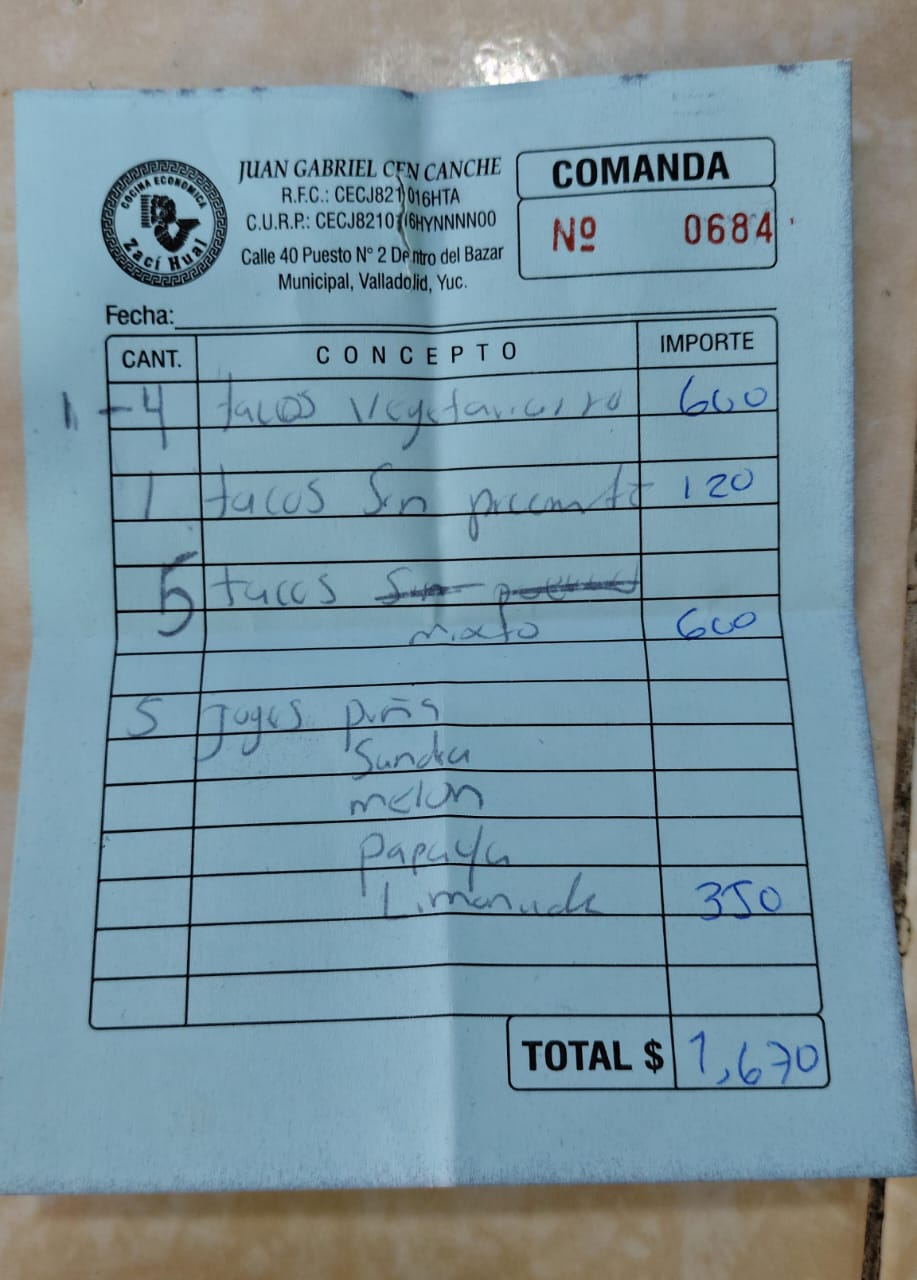 COCINA ECONOMICA
Zací Hual
JUAN GABRIEL CEN CANCHE
R.F.C.: CECJ821016HTA
C.U.R.P.: CECJ821016HYNNNN00
Calle 40 Puesto N° 2 Dentro del Bazar
Municipal, Valladolid, Yuc.
COMANDA
Nº 0684
Fecha:
CANT. CONCEPTO IMPORTE
1 - 4 tacos 600
1 tacos Sin 120
5 tacos
mixto 600
5 piña
Sandia
melon
papaya
Limonada 350
TOTAL $ 1,670